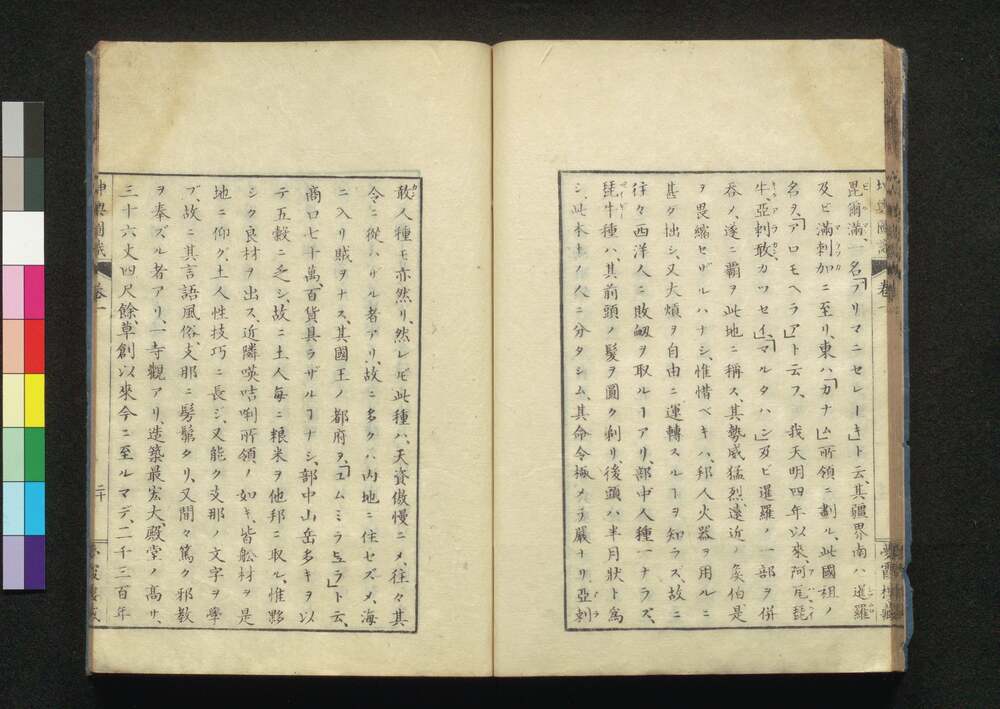 昆爾滿一名「ブリマニセレーキ」ト云、其疆界南ハ暹羅
及ビ滿剌加ニ至リ、東ハ「カナム」所領ニ劃ル、此國祖ノ
名ヲ、「アロモヘラア」ト云フ、我天明四年以來、阿瓦琵
牛、亞剌敢カツセイ、「マルタハン」及ビ暹羅ノ一部ヲ併
呑ノ、遂ニ覇ヲ此地ニ稱ス、其勢威猛烈、遠近ノ矦伯是
ヲ畏縮セザルハナシ、惟惜ベキハ、邦人火器ヲ用ルニ
甚ダ拙シ、又大煩ヲ自由ニ運轉スルヿヲ知ラス、故ニ
往々西洋人ニ敗衂ヲ取ルヿアリ、部中人種一ナラズ、
琵牛種ハ、其前頭ノ髮ヲ圓ク剃リ、後頭ハ半月狀ト爲
シ、此本土ノ人ニ分タシム、其命令極メテ嚴ナリ、亞剌
巻一
敢人種モ亦然リ、然レㇳモ此種ハ、天資傲慢ニメ、往々其
令ニ從ハザル者アリ、故ニ多クハ内地ニ住セズメ、海
ニ入リ賊ヲナス、其國王ノ都府ヲ、「ユムミラピュラ」ト云、
商口七十萬、百貨具ラザルヿナシ、部中山岳多キヲ以
テ五穀ニ乏シ、故ニ土人每ニ粮米ヲ他邦ニ取ル、惟夥
シク良材ヲ出ス、近隣𠸄咭唎所領ノ如キ、皆舩材ヲ是
地ニ仰グ、土人性技巧ニ長シ、又能ク支那ノ文字ヲ學
ブ、故ニ其言語風俗、支那ニ髣髴タリ、又間々篤ク邪教
ヲ奉ズル者アリ、一寺觀アリ、造築最宏大、殿堂ノ高サ、
三十六丈四尺餘草創以來今ニ至ルマデ、二千三百年
坤輿圖識
巻一
二十